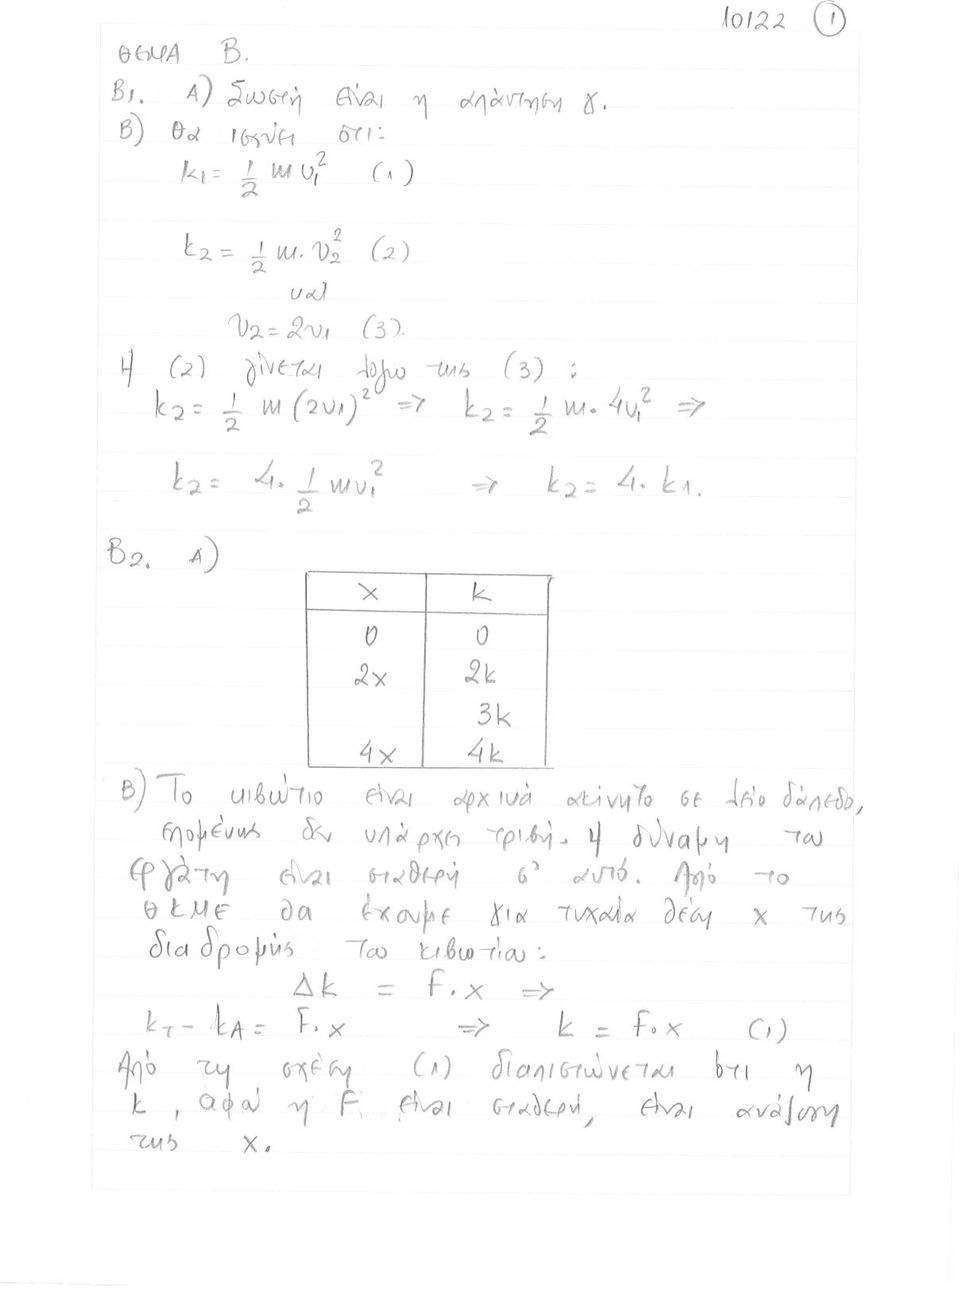 10122 ①
ΘΕΜΑ Β.
Β1. Α) Σωστή είναι η απάντηση γ.
Β) Θα ισχύει ότι:
k1 = 1/2 m υ1² (1)
k2 = 1/2 m. υ2² (2)
και
υ2 = 2υ1 (3).
Η (2) γίνεται λόγω της (3) :
k2 = 1/2 m (2υ1)² => k2 = 1/2 m. 4υ1² =>
k2 = 4. 1/2 mυ1² => k2 = 4. k1.
Β2. Α)
x k
0 0
2x 2k
3k
4x 4k
Β) Το κιβώτιο είναι αρχικά ακίνητο σε λείο δάπεδο,
επομένως δεν υπάρχει τριβή. Η δύναμη του
εργάτη είναι σταθερή σ' αυτό. Από το
ΘΚΜΕ θα έχουμε για τυχαία θέση x της
διαδρομής του κιβωτίου:
Δk = F.x =>
kτ - kΑ = F.x => k = F.x (1)
Από τη σχέση (1) διαπιστώνεται ότι η
k, αφού η F είναι σταθερή, είναι ανάλογη
της x.